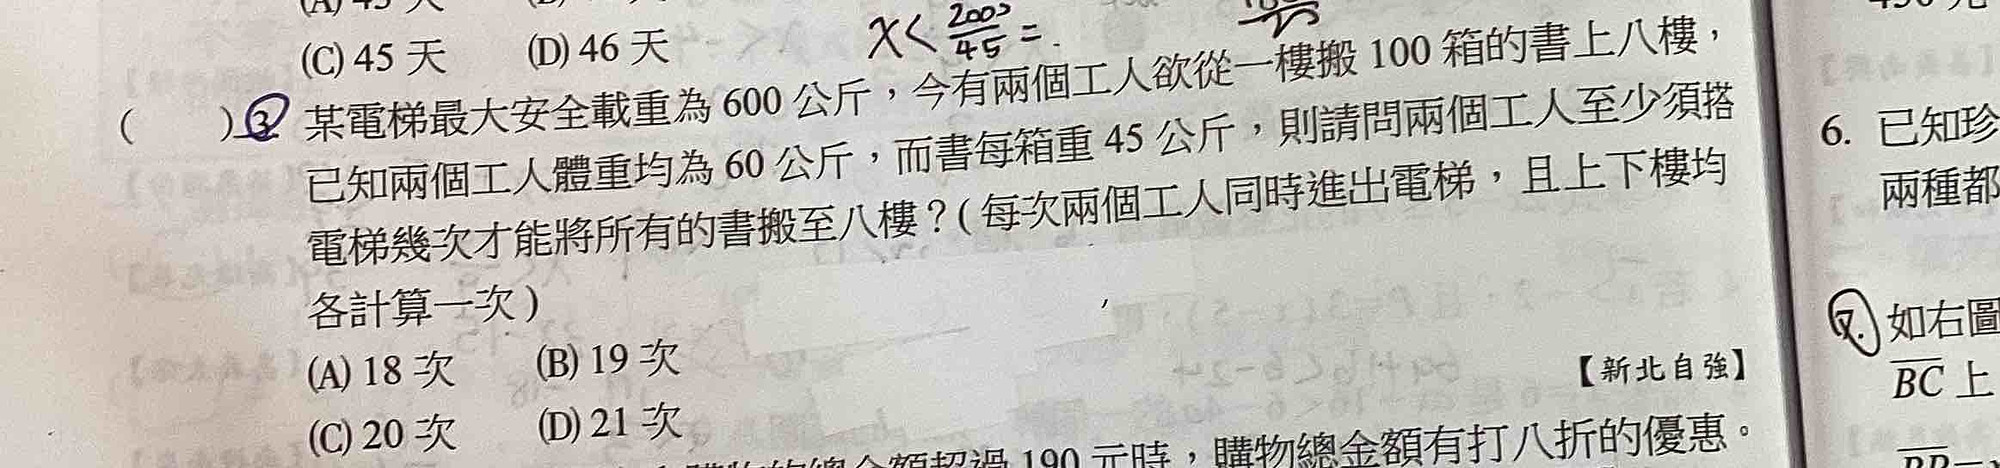 (C) 45 天 (D) 46 天
x < 2000/45 =
( ) 3. 某電梯最大安全載重為 600 公斤，今有兩個工人欲從一樓搬 100 箱的書上八樓，
已知兩個工人體重均為 60 公斤，而書每箱重 45 公斤，則請問兩個工人至少須搭
電梯幾次才能將所有的書搬至八樓？( 每次兩個工人同時進出電梯，且上下樓均
各計算一次 )
(A) 18 次 (B) 19 次
【新北自強】
(C) 20 次 (D) 21 次
190 元時，購物總金額有打八折的優惠。
6. 已知珍
兩種都
7. 如右圖
BC 上